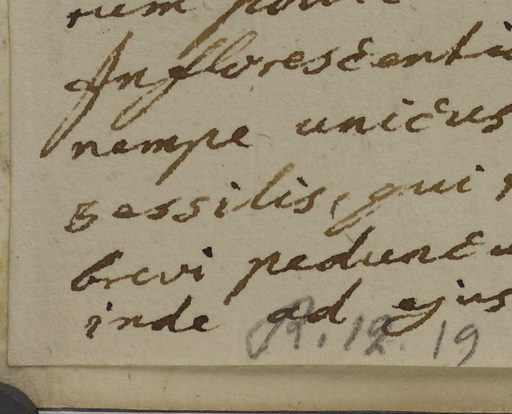 rum
Inflorescenti
nempe unicus
sessilis, qui
brevi peduncu
inde ad ejus
R. 12. 19